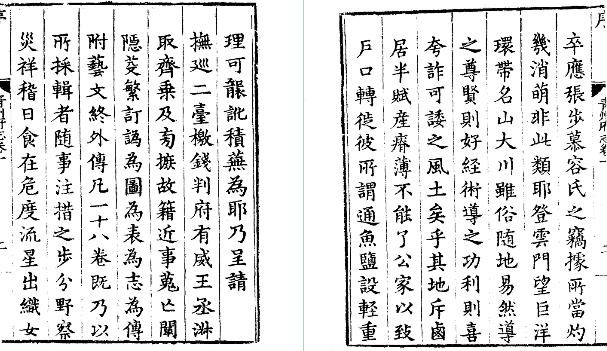 卒應張步慕容氏之竊據所當灼
幾消萌非此類耶登雲門望巨洋
環帶名山大川雖俗隨地易然導
之尊賢則好經術導之功利則喜
夸詐可諉之風土矣乎其地斥鹵
居半賦産瘠薄不能了公家以致
戶口轉徙彼所謂通魚鹽設輕重
理可訛積蕪為耶乃呈請
撫廵二臺檄錢判府有威王丞
取齊乗及旁摭故籍近事蒐亡闡
隱芟繁訂譌為圖為表為志為傳
附藝文終外傳凡一十八卷既乃以
所採輯者随事注措之步分野察
災祥稽日食在危度流星出織女